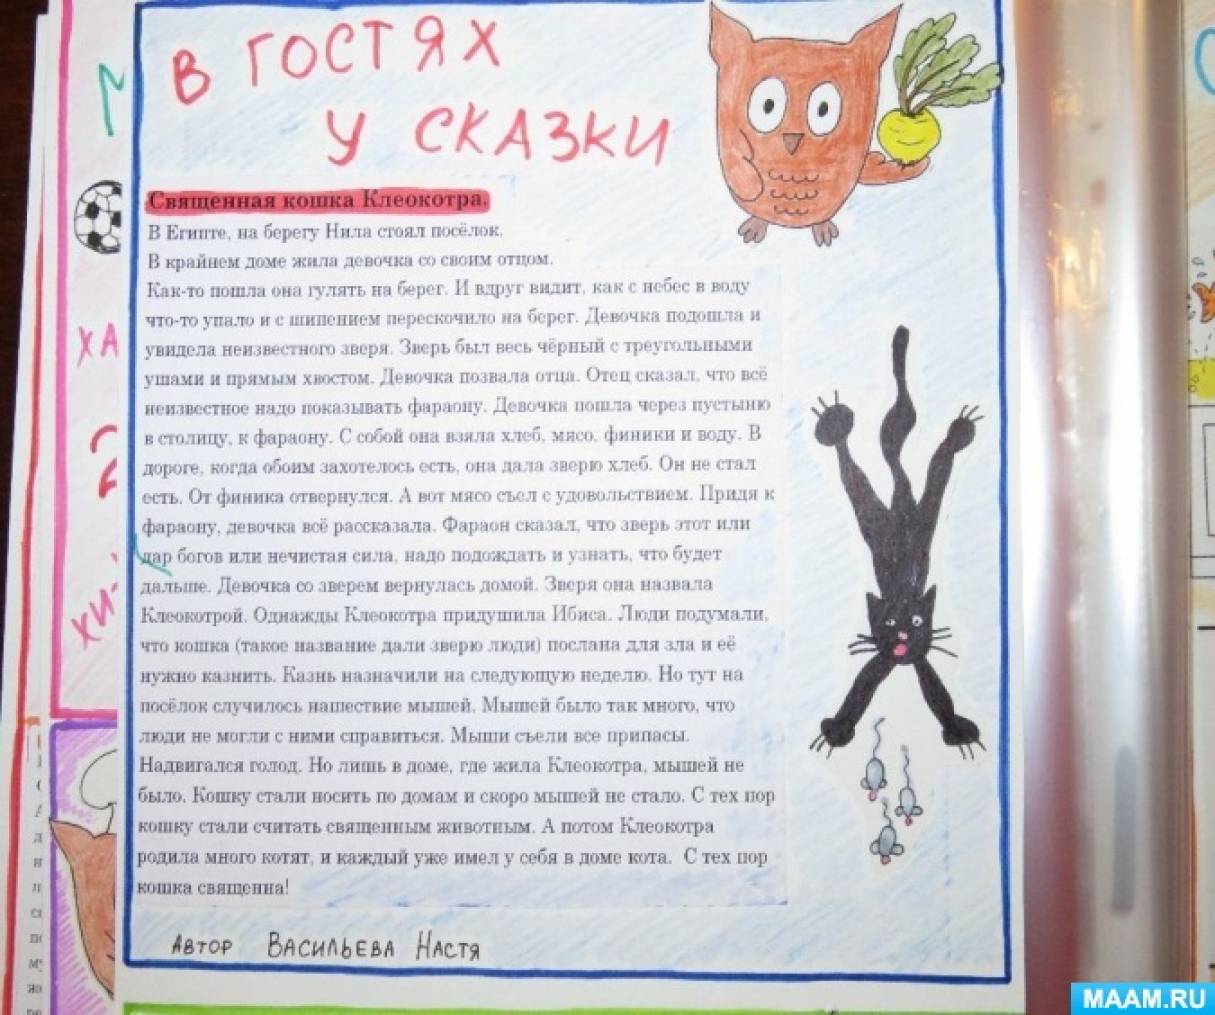 В ГОСТЯХ
У СКАЗКИ
Священная кошка Клеокотра.
В Египте, на берегу Нила стоял посёлок.
В крайнем доме жила девочка со своим отцом.
Как-то пошла она гулять на берег. И вдруг видит, как с небес в воду
что-то упало и с шипением перескочило на берег. Девочка подошла и
увидела неизвестного зверя. Зверь был весь чёрный с треугольными
ушами и прямым хвостом. Девочка позвала отца. Отец сказал, что всё
неизвестное надо показывать фараону. Девочка пошла через пустыню
в столицу, к фараону. С собой она взяла хлеб, мясо, финики и воду. В
дороге, когда обоим захотелось есть, она дала зверю хлеб. Он не стал
есть. От финика отвернулся. А вот мясо съел с удовольствием. Придя к
фараону, девочка всё рассказала. Фараон сказал, что зверь этот или
дар богов или нечистая сила, надо подождать и узнать, что будет
дальше. Девочка со зверем вернулась домой. Зверя она назвала
Клеокотрой. Однажды Клеокотра придушила Ибиса. Люди подумали,
что кошка (такое название дали зверю люди) послана для зла и её
нужно казнить. Казнь назначили на следующую неделю. Но тут на
посёлок случилось нашествие мышей. Мышей было так много, что
люди не могли с ними справиться. Мыши съели все припасы.
Надвигался голод. Но лишь в доме, где жила Клеокотра, мышей не
было. Кошку стали носить по домам и скоро мышей не стало. С тех пор
кошку стали считать священным животным. А потом Клеокотра
родила много котят, и каждый уже имел у себя в доме кота. С тех пор
кошка священна!
АВТОР ВАСИЛЬЕВА НАСТЯ
ХА
ХИ
MAAM.RU